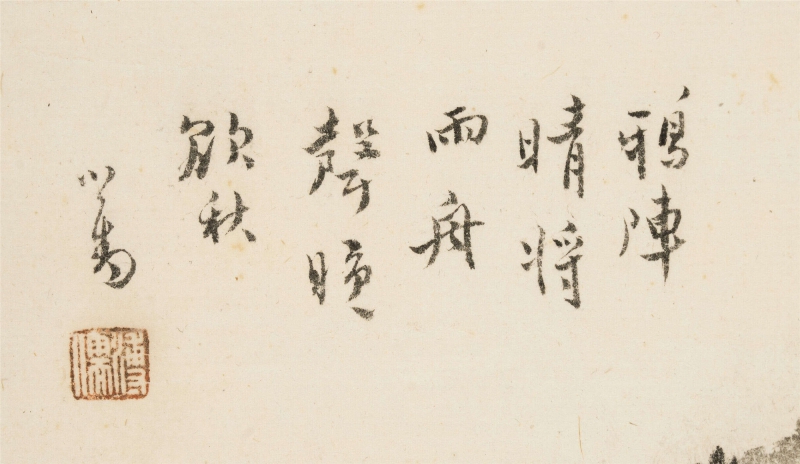 鴉陣
晴将
雨舟
聲暝
欲秋
心畬
溥儒